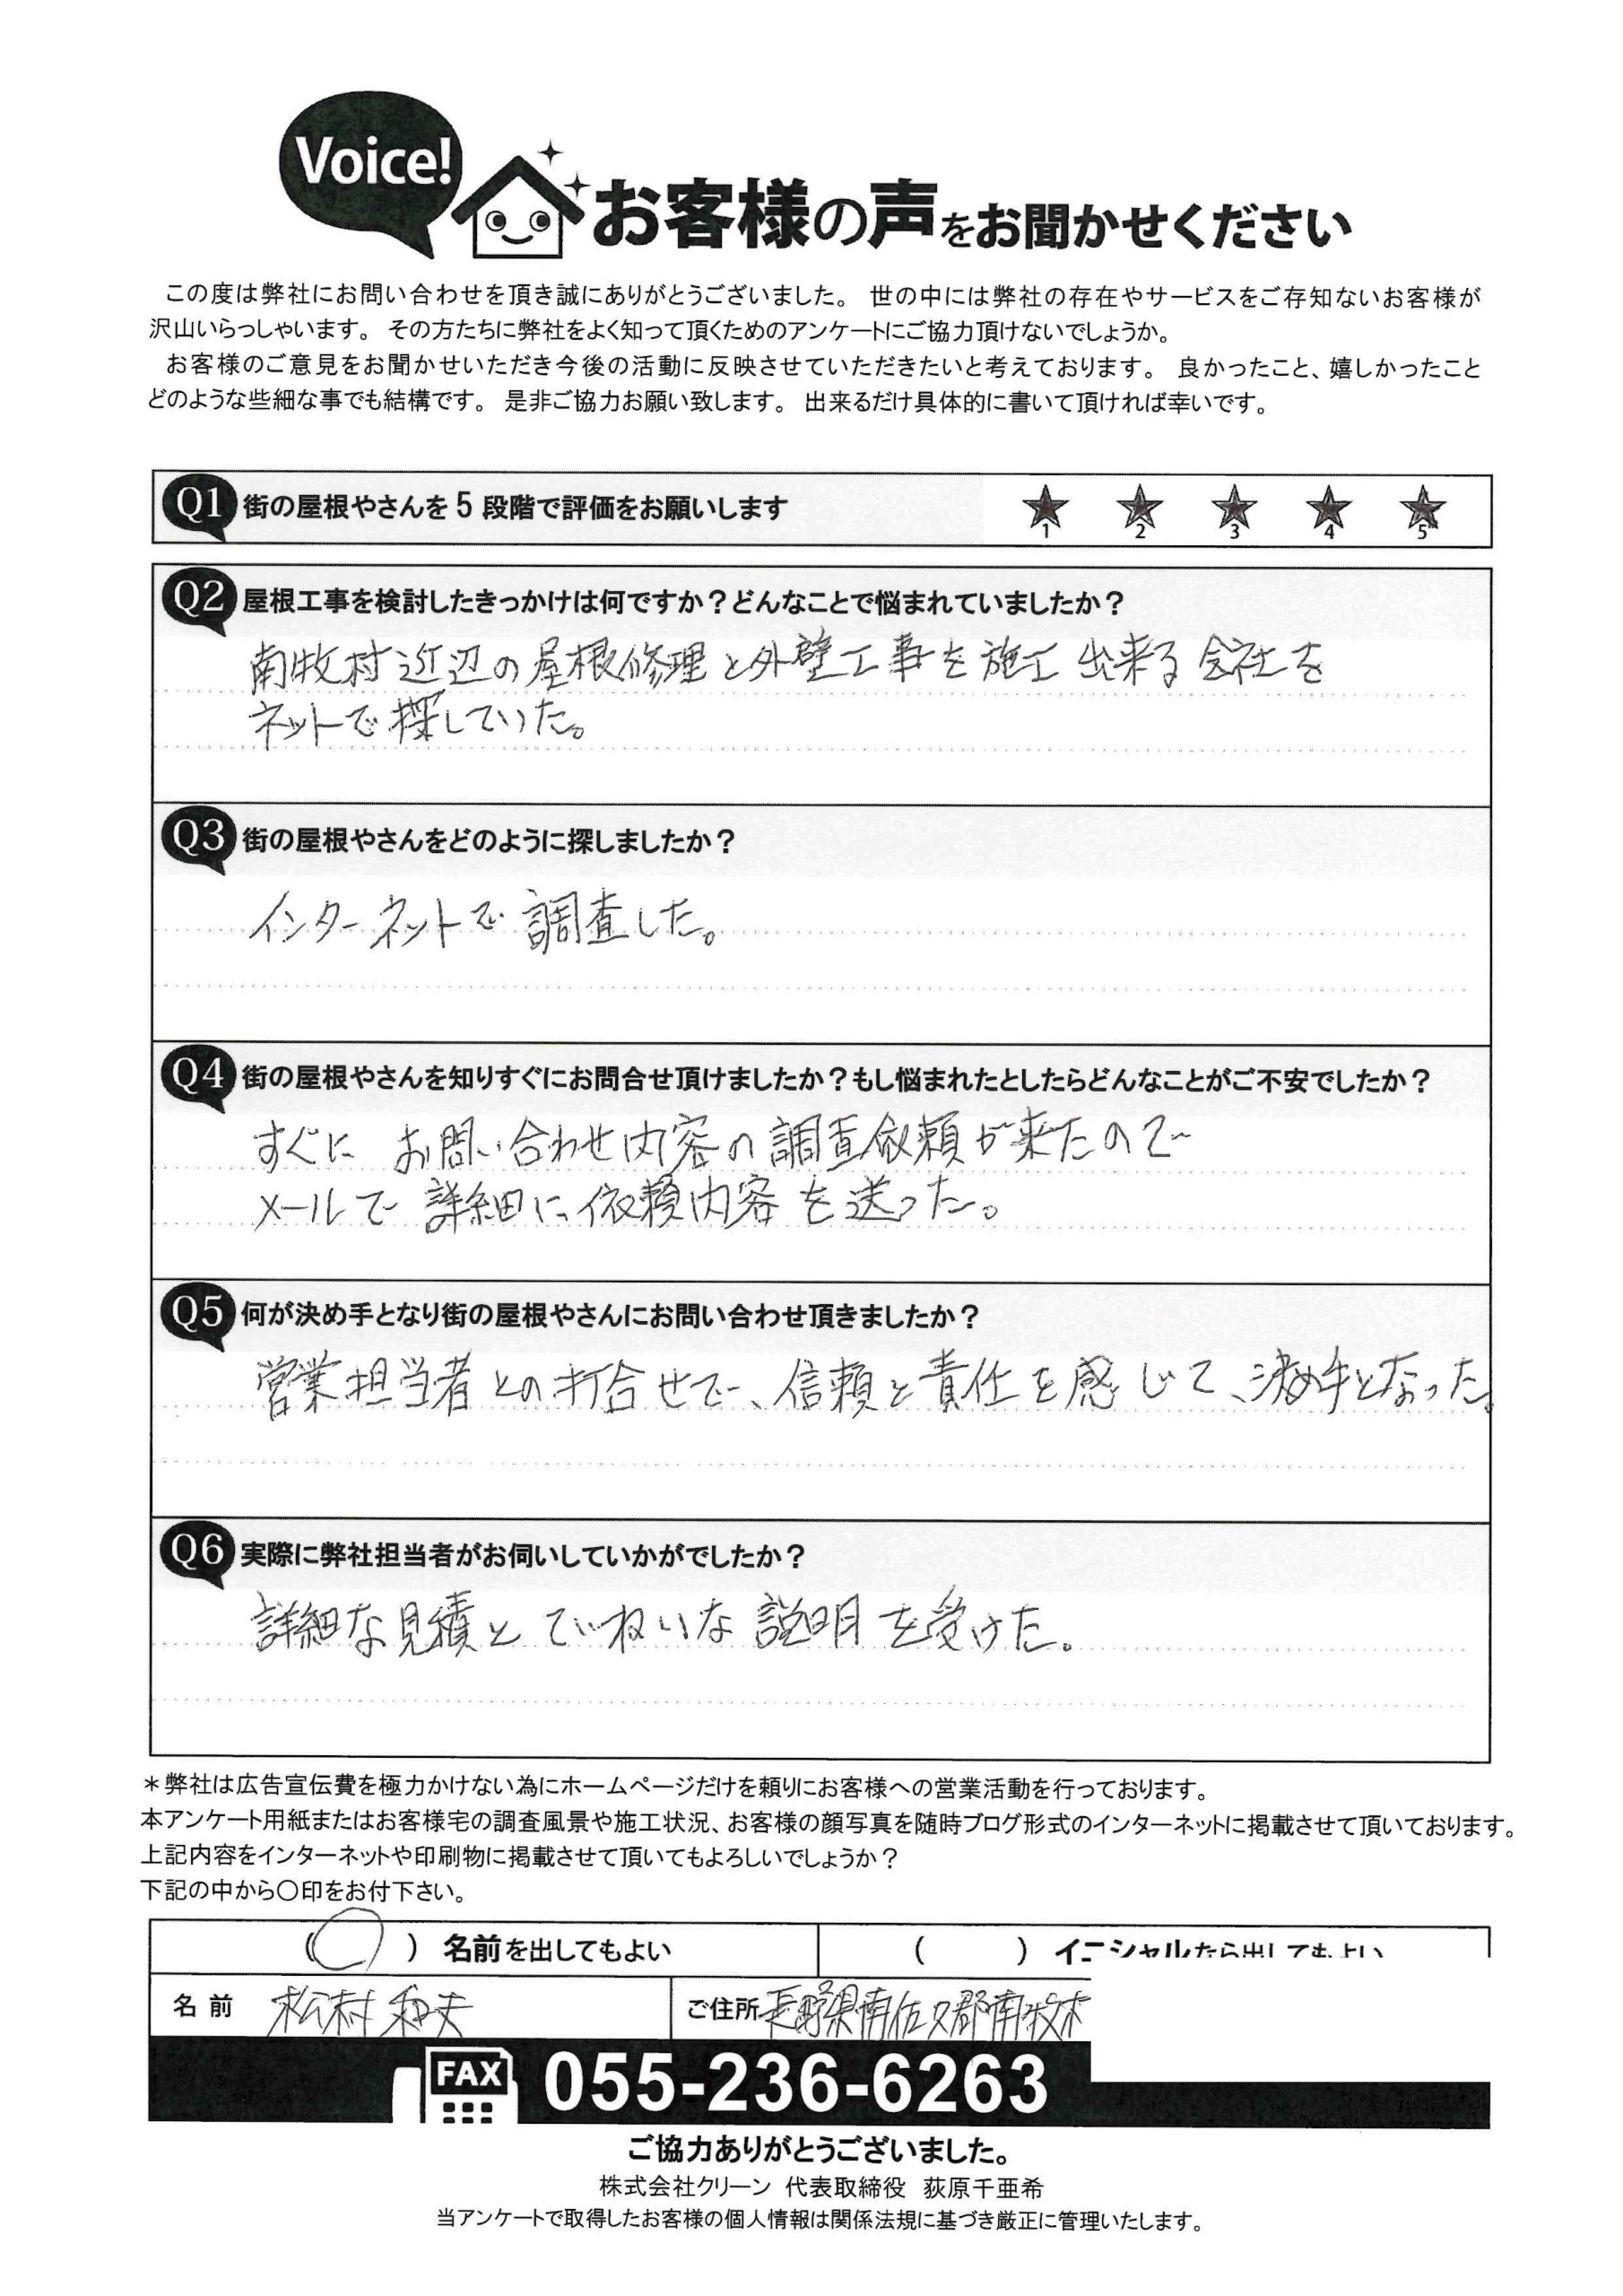 Voice!
お客様の声をお聞かせください
この度は弊社にお問い合わせを頂き誠にありがとうございました。 世の中には弊社の存在やサービスをご存知ないお客様が
沢山いらっしゃいます。 その方たちに弊社をよく知って頂くためのアンケートにご協力頂けないでしょうか。
お客様のご意見をお聞かせいただき今後の活動に反映させていただきたいと考えております。 良かったこと、嬉しかったこと
どのような些細な事でも結構です。 是非ご協力お願い致します。 出来るだけ具体的に書いて頂ければ幸いです。
Q1 街の屋根やさんを5段階で評価をお願いします 1 2 3 4 5
Q2 屋根工事を検討したきっかけは何ですか？どんなことで悩まれていましたか？
南牧村近辺の屋根修理と外壁工事を施工出来る会社を
ネットで探していた。
Q3 街の屋根やさんをどのように探しましたか？
インターネットで調査した。
Q4 街の屋根やさんを知りすぐにお問合せ頂けましたか？もし悩まれたとしたらどんなことがご不安でしたか？
すぐに お問い合わせ内容の調査依頼が来たので
メールで詳細に依頼内容を送った。
Q5 何が決め手となり街の屋根やさんにお問い合わせ頂きましたか？
営業担当者との打合せで、信頼と責任を感じて、決め手となった。
Q6 実際に弊社担当者がお伺いしていかがでしたか？
詳細な見積とていねいな説明を受けた。
＊弊社は広告宣伝費を極力かけない為にホームページだけを頼りにお客様への営業活動を行っております。
本アンケート用紙またはお客様宅の調査風景や施工状況、お客様の顔写真を随時ブログ形式のインターネットに掲載させて頂いております。
上記内容をインターネットや印刷物に掲載させて頂いてもよろしいでしょうか？
下記の中から〇印をお付下さい。
(〇) 名前を出してもよい ( ) イニシャルなら出してもよい
名前 松村和夫 ご住所 長野県南佐久郡南牧村
FAX 055-236-6263
ご協力ありがとうございました。
株式会社クリーン 代表取締役 荻原千亜希
当アンケートで取得したお客様の個人情報は関係法規に基づき厳正に管理いたします。